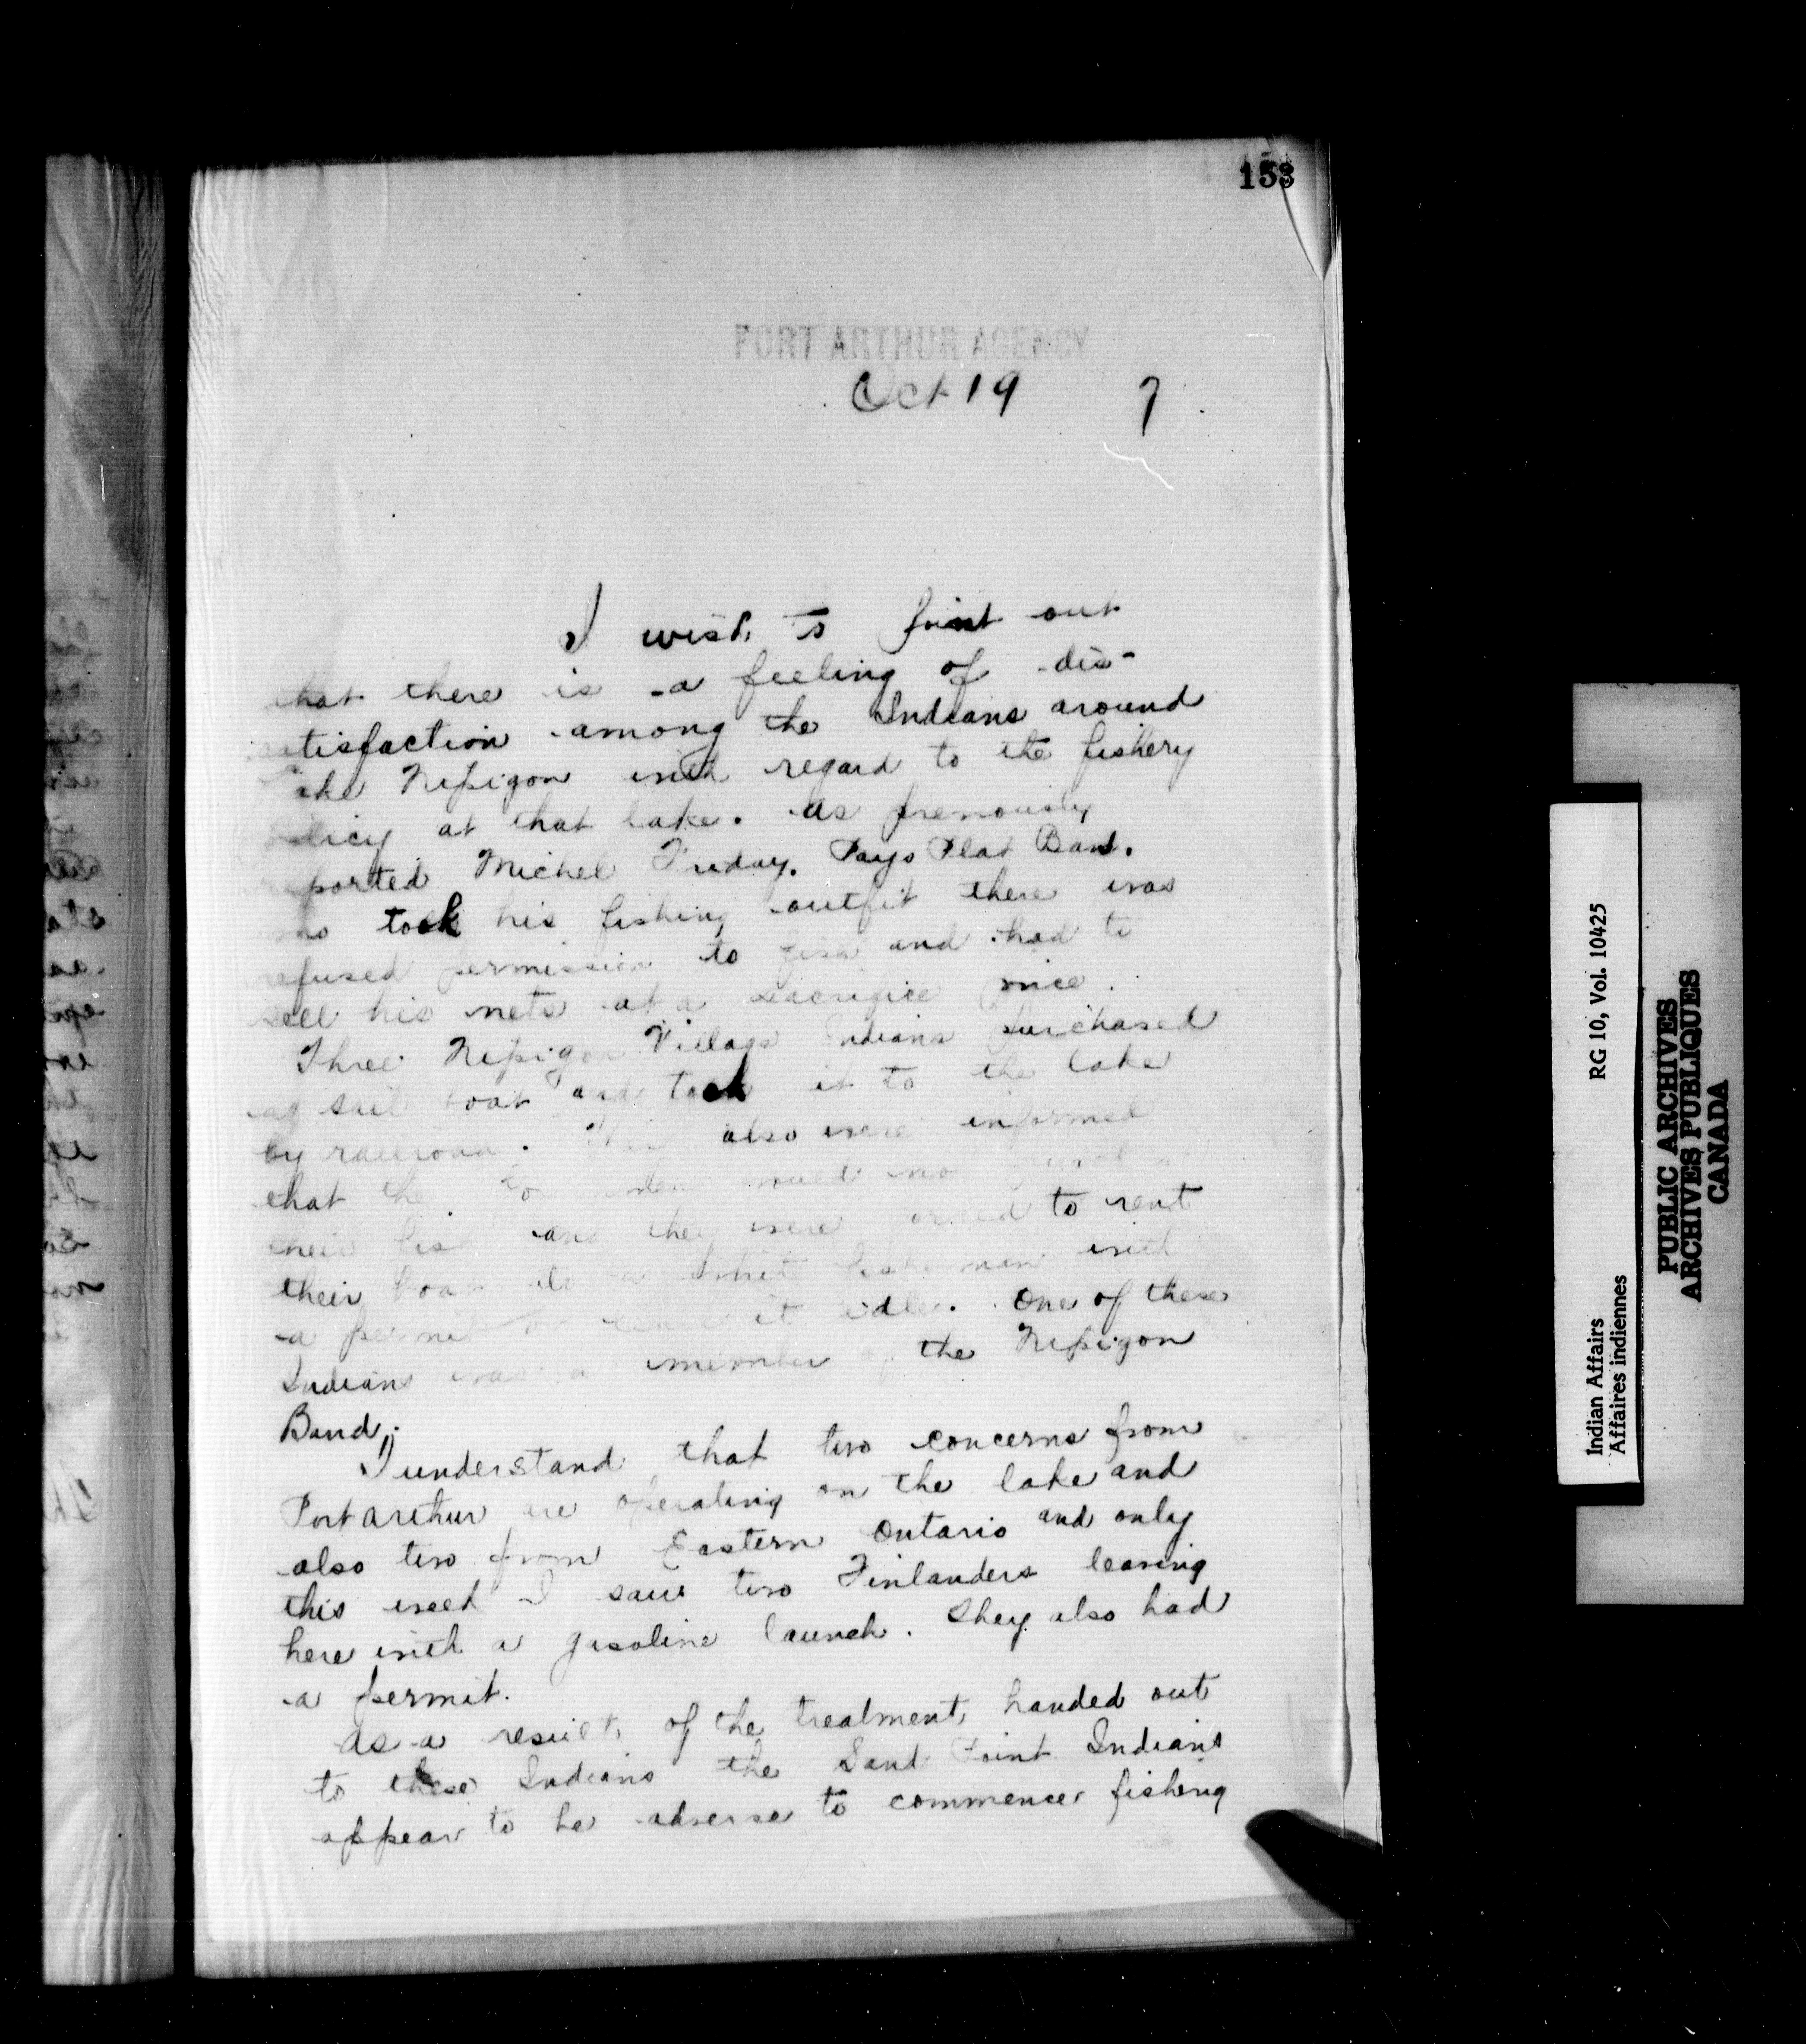 153
PORT ARTHUR AGENCY
Oct 19 7
I wish to point out
that there is a feeling of dis-
satisfaction among the Indians around
Lake Nipigon with regard to the fishery
policy at that lake. As previously
reported Michel Friday. Pays Plat Band.
who took his fishing outfit there was
refused permission to fish and had to
sell his nets at a sacrifice price.
Three Nipigon Village Indians purchased
a sail boat and took it to the lake
by railroad. They also were informed
that the would no
their fish and they were forced to rent
their boat to a white fisherman with
a permit or leave it idle. One of these
Indians was a member of the Nipigon
Band.
I understand that two concerns from
Port Arthur are operating on the lake and
also two from Eastern Ontario and only
this week I saw two Finlanders leaving
here with a gasoline launch. They also had
a permit.
As a result of the treatment handed out
to these Indians the Sand Point Indians
appear to be adverse to commence fishing
Indian Affairs RG 10, Vol. 10425
Affaires indiennes
PUBLIC ARCHIVES
ARCHIVES PUBLIQUES
CANADA